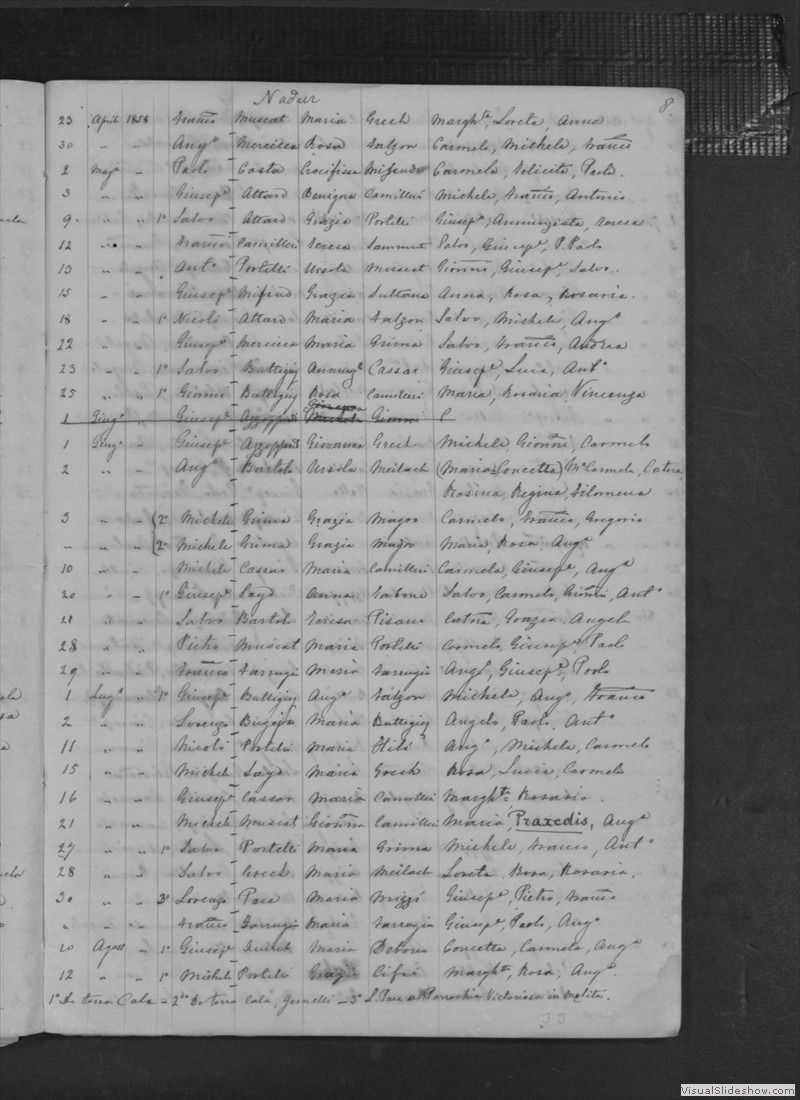 Nadur
8.
23 April 1858 Franco Muscat Maria Grech Marghta, Loreta, Anna
30 " " Anga Mercieca Rosa Falzon Carmelo, Michele, Franco
2 Maga " Paolo Costa Crocifissa Mifsud Carmela, Felicita, Paola.
3 " " Giusepe Attard Benigna Camilleri Michele, Franco, Antonio.
9 " " 1o Salvo Attard Grazia Portelli Giusepa, Annunziata, Teresa.
12 " " Franco Camilleri Teresa Sammut Salvo, Giusepe, P. Paolo
13 " " Anto Portelli Ursola Muscat Gionni, Giusepe, Salvo.
15 " " Giusepe Mifsud Grazia Sultana Anna, Rosa, Rosaria.
18 " " 1o Nicolò Attard Maria Falzon Salvo, Michele, Ango
22 " " Giusepe Mercieca Maria Grima Salvo, Franco, Andrea
23 " " 1o Salvo Buttigieg Annunzta Cassar Giusepa, Lucia, Anta
25 " " 1o Gionni Buttigieg Rosa Camilleri Maria, Rosaria, Vincenza
1 Giugo " Giusepe Azzoppardi Giovanna Gionni
1 Giugo " Giusepe Azzoppardi Giovanna Grech Michele, Gionni, Carmelo
2 " " Ango Bartolo Ursola Meilach (Maria Concetta) Ma Carmela, Catna,
Rosina, Regina, Filomena
3 " " (2o Michele Grima Grazia Magro Carmelo, Franco, Gregorio
" " " (2o Michele Grima Grazia Magro Maria, Rosa, Anga
10 " " Michele Cassar Maria Camilleri Carmela, Giusepa, Anga
20 " " 1o Giusepe Sayd Anna Tabone Salvo, Carmelo, Gionni, Anto
21 " " Salvo Bartolo Teresa Pisani Catna, Grazia, Angela
28 " " Pietro Muscat Maria Portelli Carmelo, Giusepe, Paolo
29 " " Franco Farrugia Maria Farrugia Ango, Giusepe, Paolo
1 Lugo " 1o Giusepe Buttigieg Anga Falzon Michele, Ango, Franco
2 " " Lorenzo Bugeja Maria Buttigieg Angelo, Paolo, Anto
11 " " Nicolò Portelli Maria Hili Ango, Michele, Carmelo
15 " " Michele Sayd Maria Grech Rosa, Lucia, Carmela
16 " " Giusepe Cassar Maria Camilleri Marghta, Rosaria.
21 " " Michele Muscat Gionna Camilleri Maria, Praxedis, Anga
27 " " 1o Salvo Portelli Maria Grima Michele, Franco, Anto
28 " " Salvo Grech Maria Meilach Loreta, Rosa, Rosaria.
30 " " 3o Lorenzo Pace Maria Mizzi Giusepe, Pietro, Franco
" " " Franco Farrugia Maria Farrugia Giusepe, Paolo, Ango
10 Agost " 1o Giusepe Maria Debono Concetta, Carmela, Anga
12 " " 1o Michele Portelli Grazia Marghta, Rosa, Anga
1o Da terra Cala - 2do De terra Cala, Gemelli - 3o L Pace e Parrochia Victoriosa in Melita.
33
VisualSlideshow.com